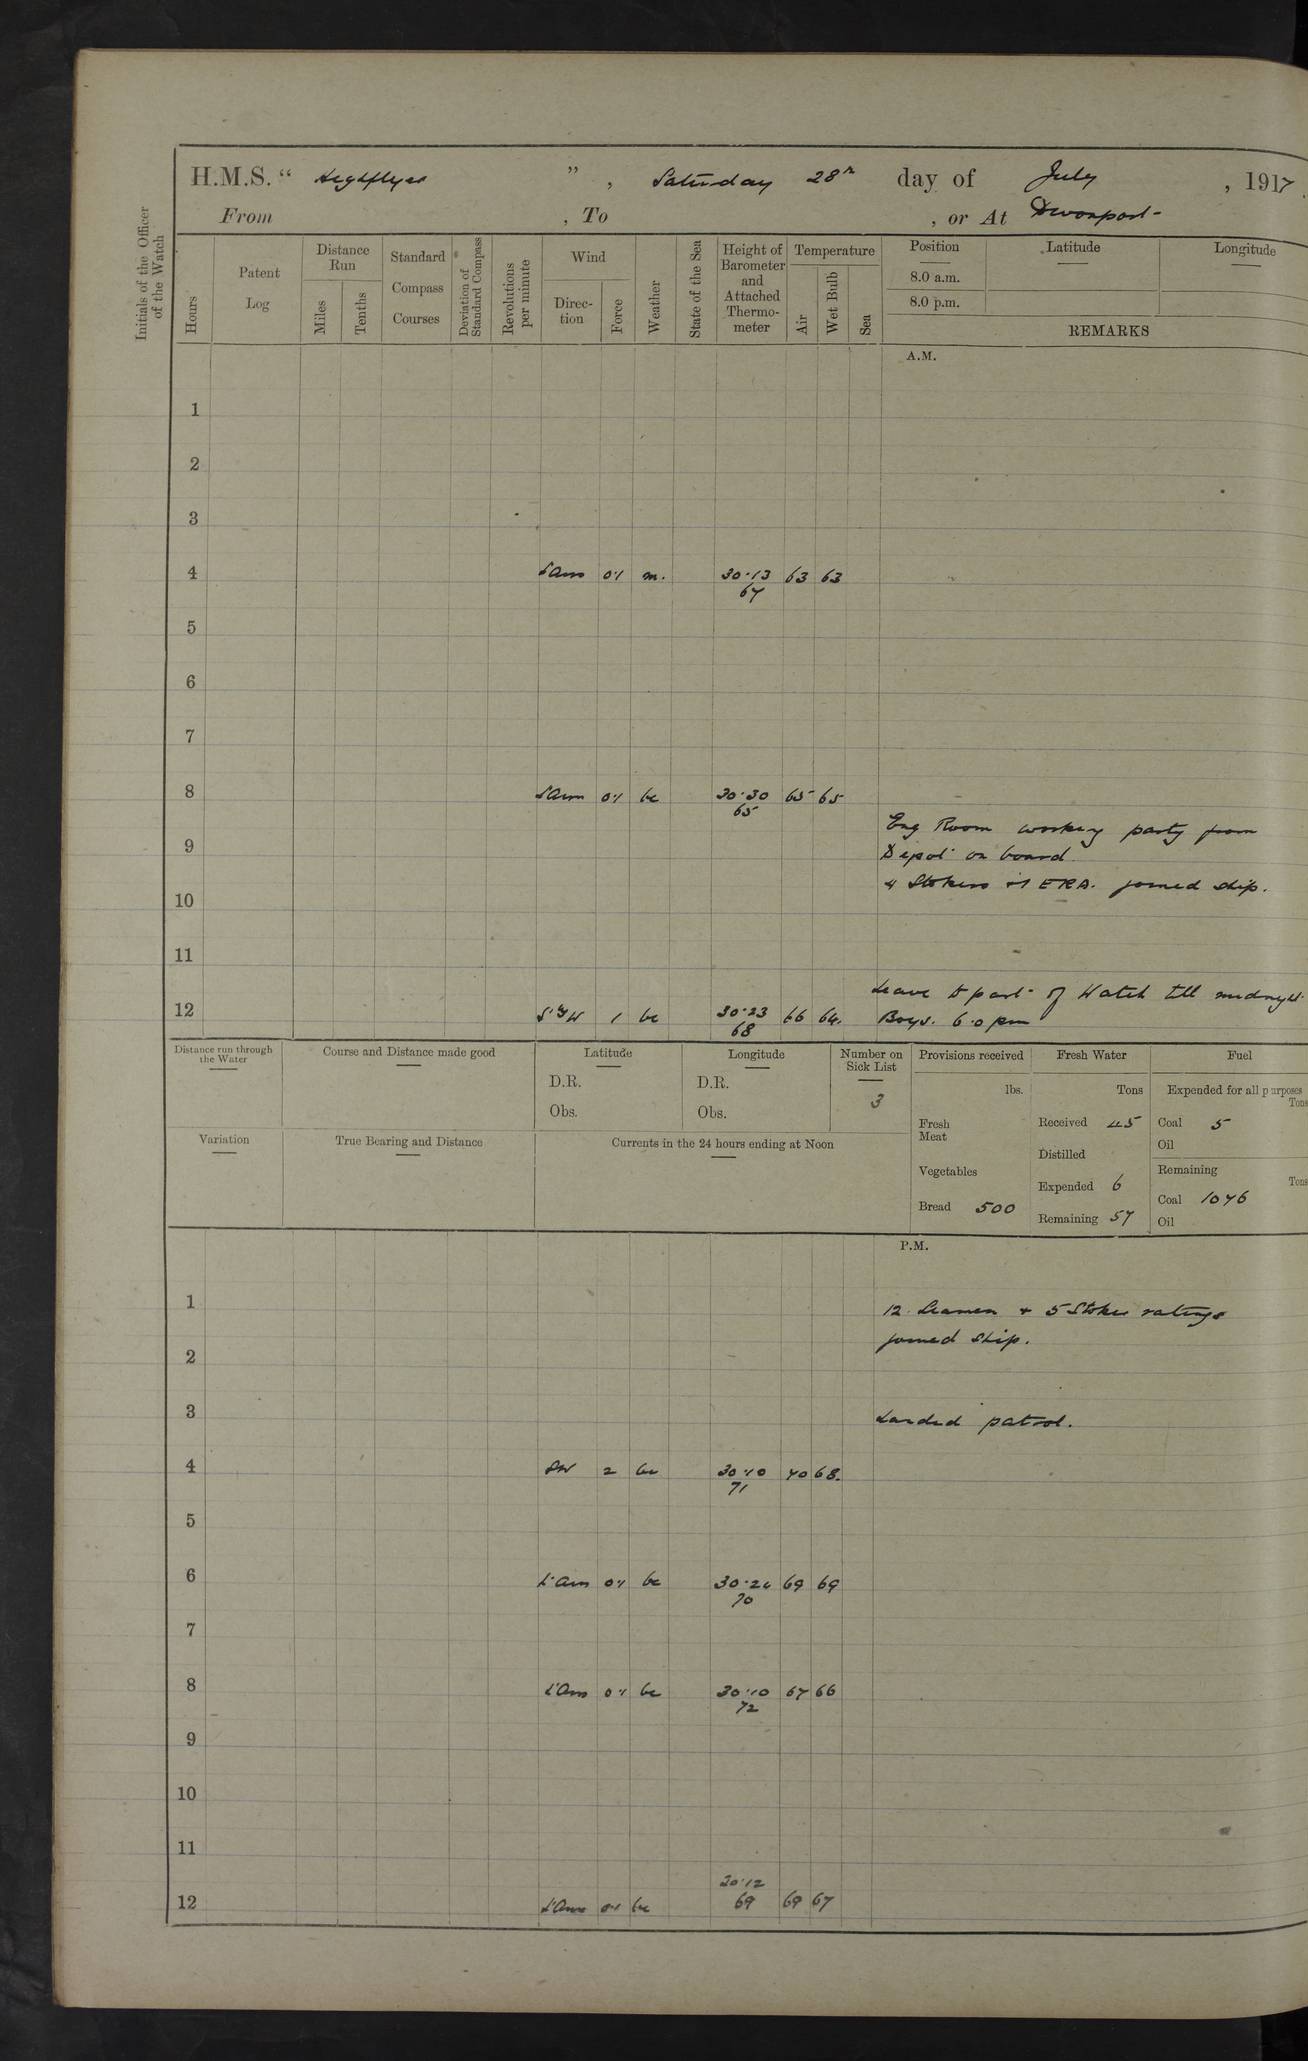 H.M.S. “ Highflyer ” , Saturday 28th day of July , 1917.
From , To , or At Devonport
Initials of the Officer of the Watch
Hours
Patent Log
Distance Run
Miles
Tenths
Standard Compass Courses
Deviation of Standard Compass
Revolutions per minute
Wind
Direc-tion
Force
Weather
State of the Sea
Height of Barometer and Attached Thermo-meter
Temperature
Air
Wet Bulb
Sea
Position Latitude Longitude
8.0 a.m.
8.0 p.m.
REMARKS
A.M.
1
2
3
4 0.1 m. 30.13 63 63
67
5
6
7
8 0.1 bc 30.30 65 65
65
Eng Room working party from
9 Depot on board
4 Stokers & 1 ERA. joined ship.
10
11
Leave to part of Watch till midnight
12 S'ly W 1 bc 30.23 66 64. Boys. 6.0 pm
68
Distance run through the Water
Course and Distance made good
Latitude
D.R.
Obs.
Longitude
D.R.
Obs.
Number on Sick List
3
Provisions received
lbs.
Fresh Meat
Vegetables
Bread 500
Fresh Water
Tons
Received 45
Distilled
Expended 6
Remaining 57
Fuel
Expended for all purposes
Tons
Coal 5
Oil
Remaining
Tons
Coal 1076
Oil
Variation
True Bearing and Distance
Currents in the 24 hours ending at Noon
P.M.
1 12 Seamen + 5 Stoker ratings
joined ship.
2
3 Landed patrol.
4 SW 2 bc 30.10 70 68.
71
5
6 0.1 bc 30.24 69 69
70
7
8 0.1 bc 30.10 67 66
72
9
10
11
30.12
12 0.1 bc 69 69 67